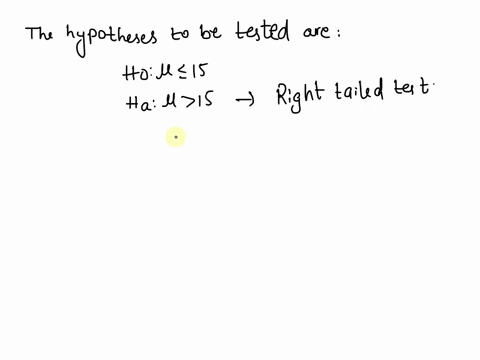 The hypotheses to be tested are:
Ho: μ ≤ 15
Ha: μ > 15 → Right tailed test.